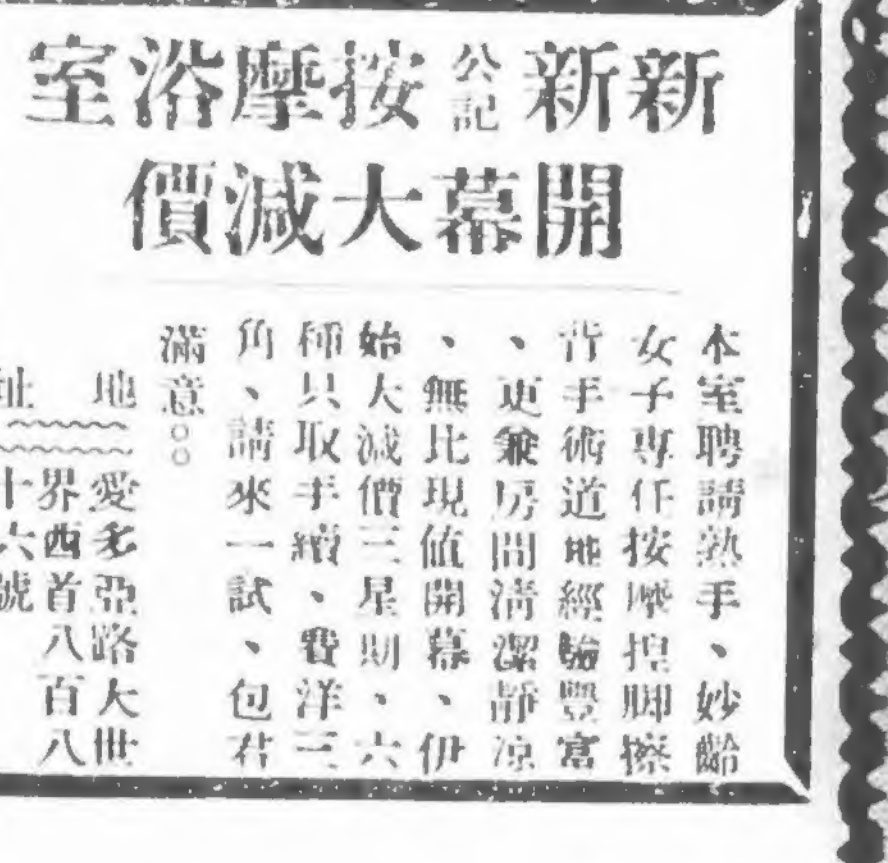 新新公記按摩浴室
開幕大減價
本室聘請熟手、妙齡
女子專任按摩捏脚擦
背手術道地經驗豐富
、更兼房間清潔靜凉
、無比現值開幕、伊
始大減價三星期、六
種只取手續、費洋三
角、請來一試、包君
滿意○○
地址
愛多亞路大世
界西首八百八
十六號